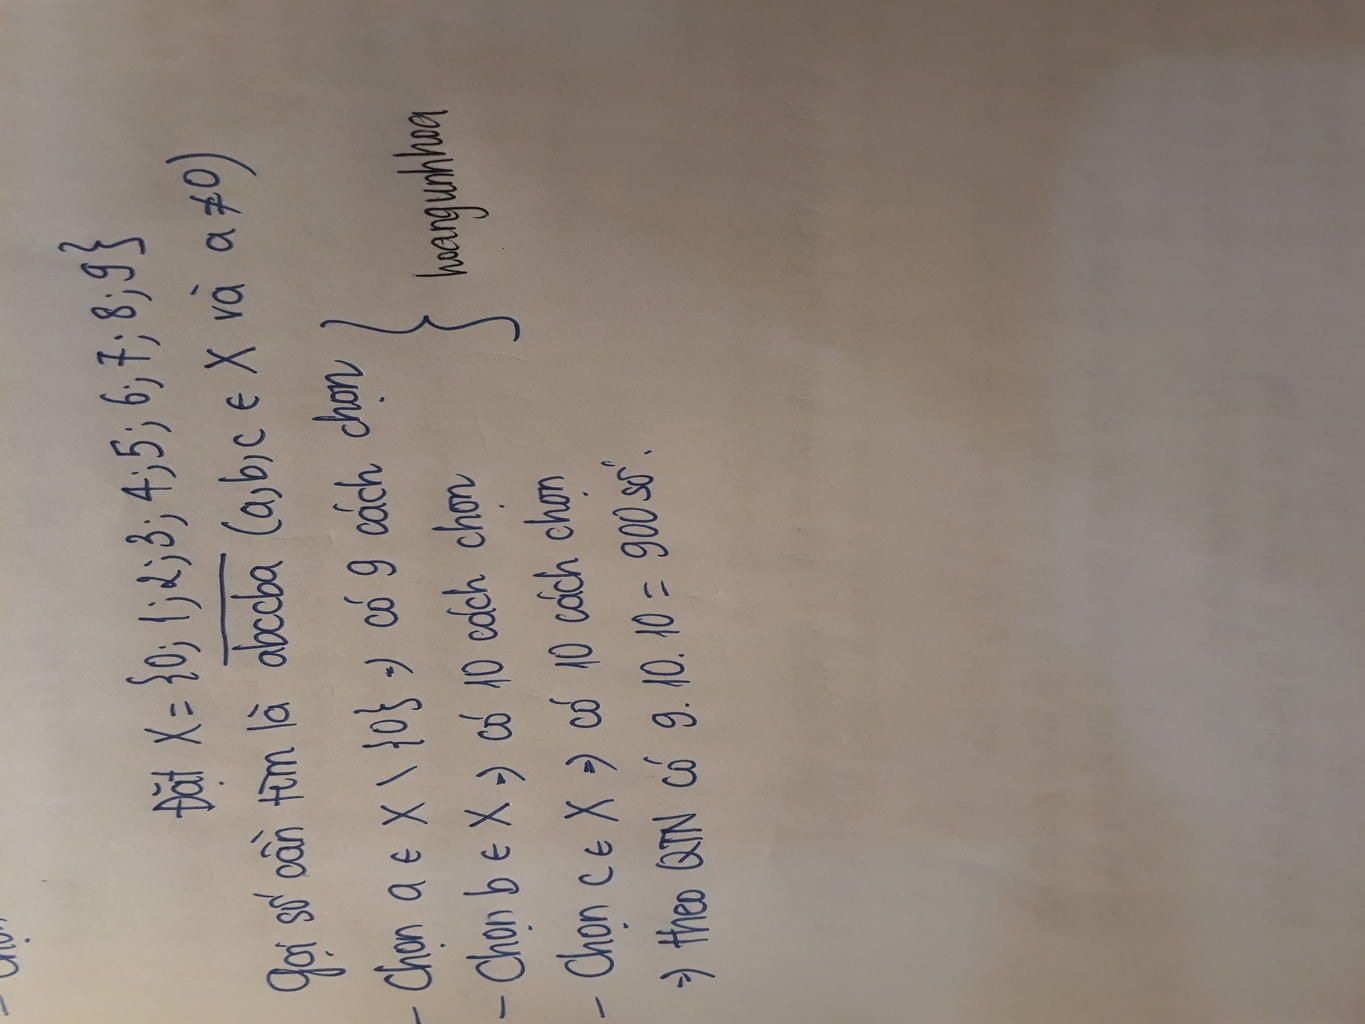 Đặt X = {0; 1; 2; 3; 4; 5; 6; 7; 8; 9}
Gọi số cần tìm là abccba (a, b, c ∈ X và a ≠ 0)
- Chọn a ∈ X \ {0} => có 9 cách chọn
- Chọn b ∈ X => có 10 cách chọn
- Chọn c ∈ X => có 10 cách chọn
hoangunhhoa
=> theo QTN có 9. 10. 10 = 900 số.